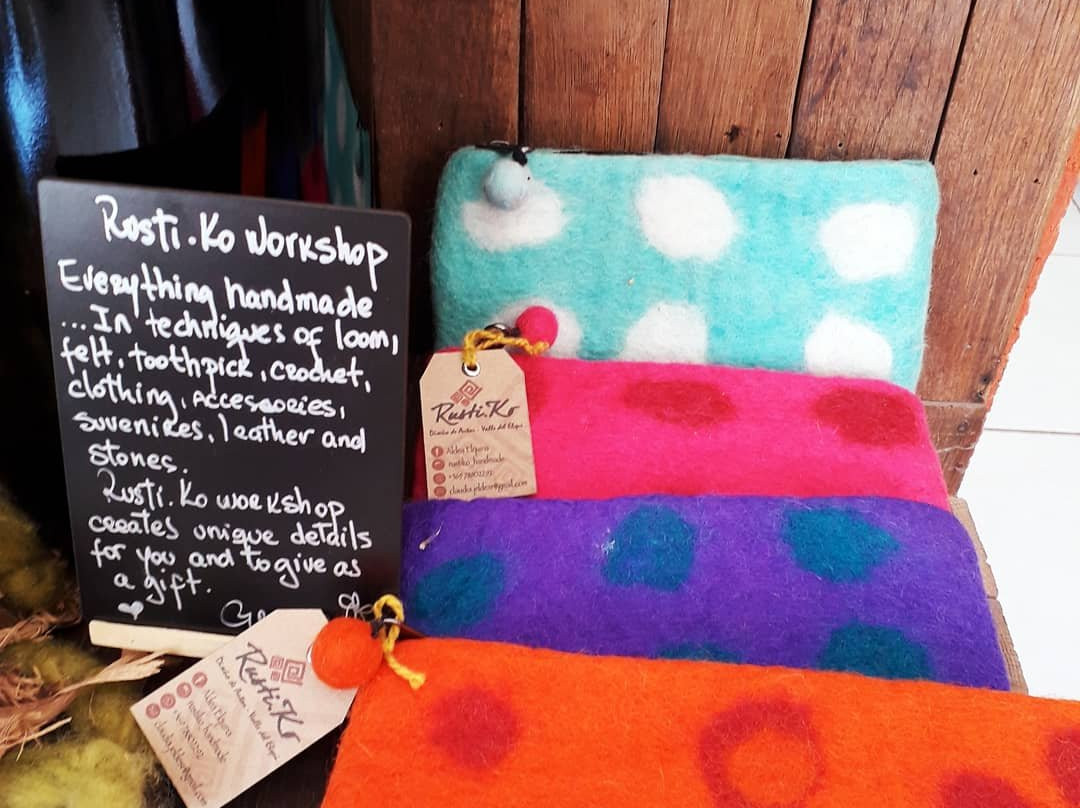 Rosti.Ko Workshop
Everything handmade
...In techniques of loom,
felt, toothpick, crochet,
clothing, Accessories,
suvenires, leather and
stones.
Rusti.Ko workshop
creates unique details
for you and to give as
a gift.
Rusti.Ko
Diseño de Autor - Valle del Elqui
Aldea Elquina
rustiko_handmade
Rusti.Ko
Diseño de Autor - Valle del Elqui
Aldea Elquina
rustiko_handmade